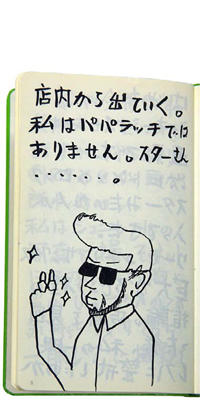 店内から出ていく。
私はパパラッチでは
ありません。スターさん
・・・・・・。